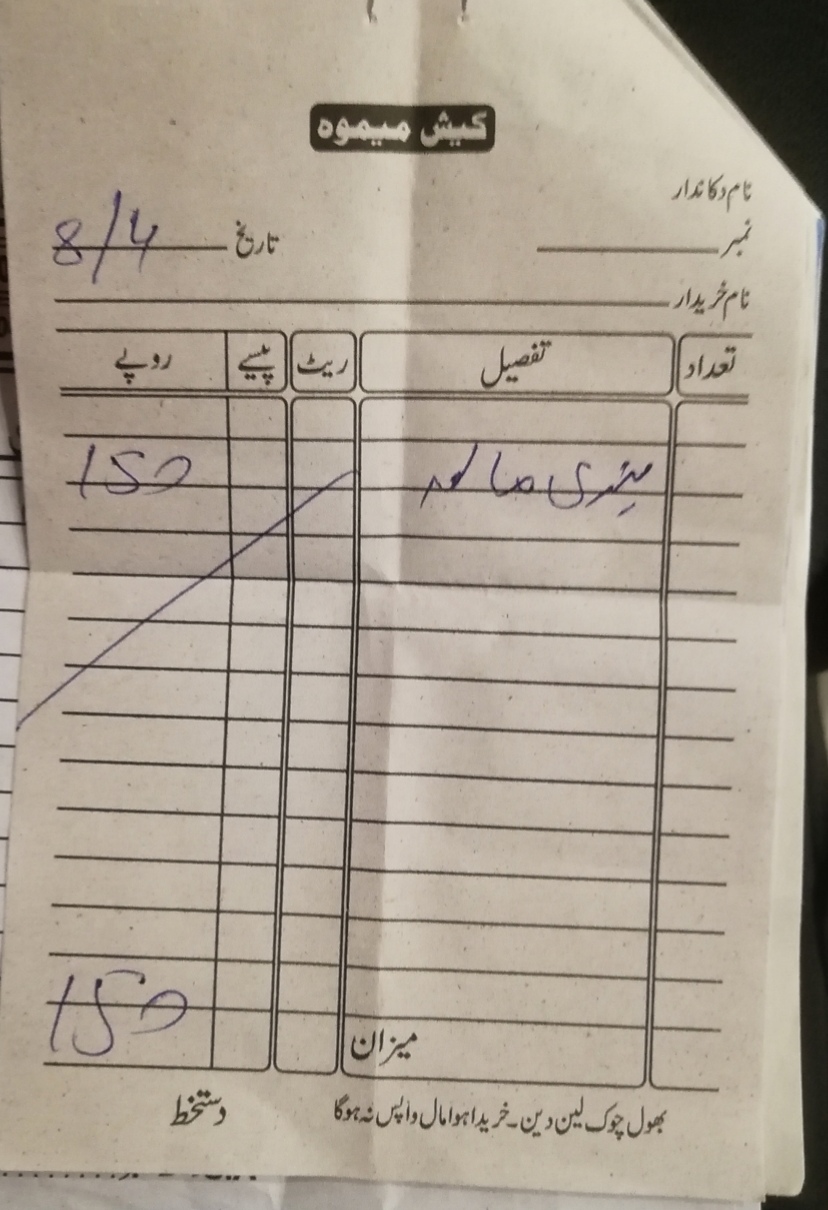 کیش میموہ
نام دکاندار
نمبر تاریخ 8/4
نام خریدار
تعداد تفصیل ریٹ پیسے روپے
150
میزان 150
بھول چوک لین دین۔ خریدا ہوا مال واپس نہ ہوگا دستخط